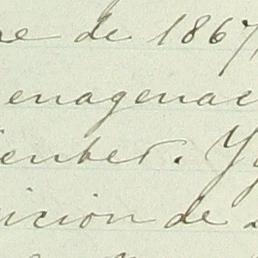 re de 1867,
enagenac
ienber. Y
icion de